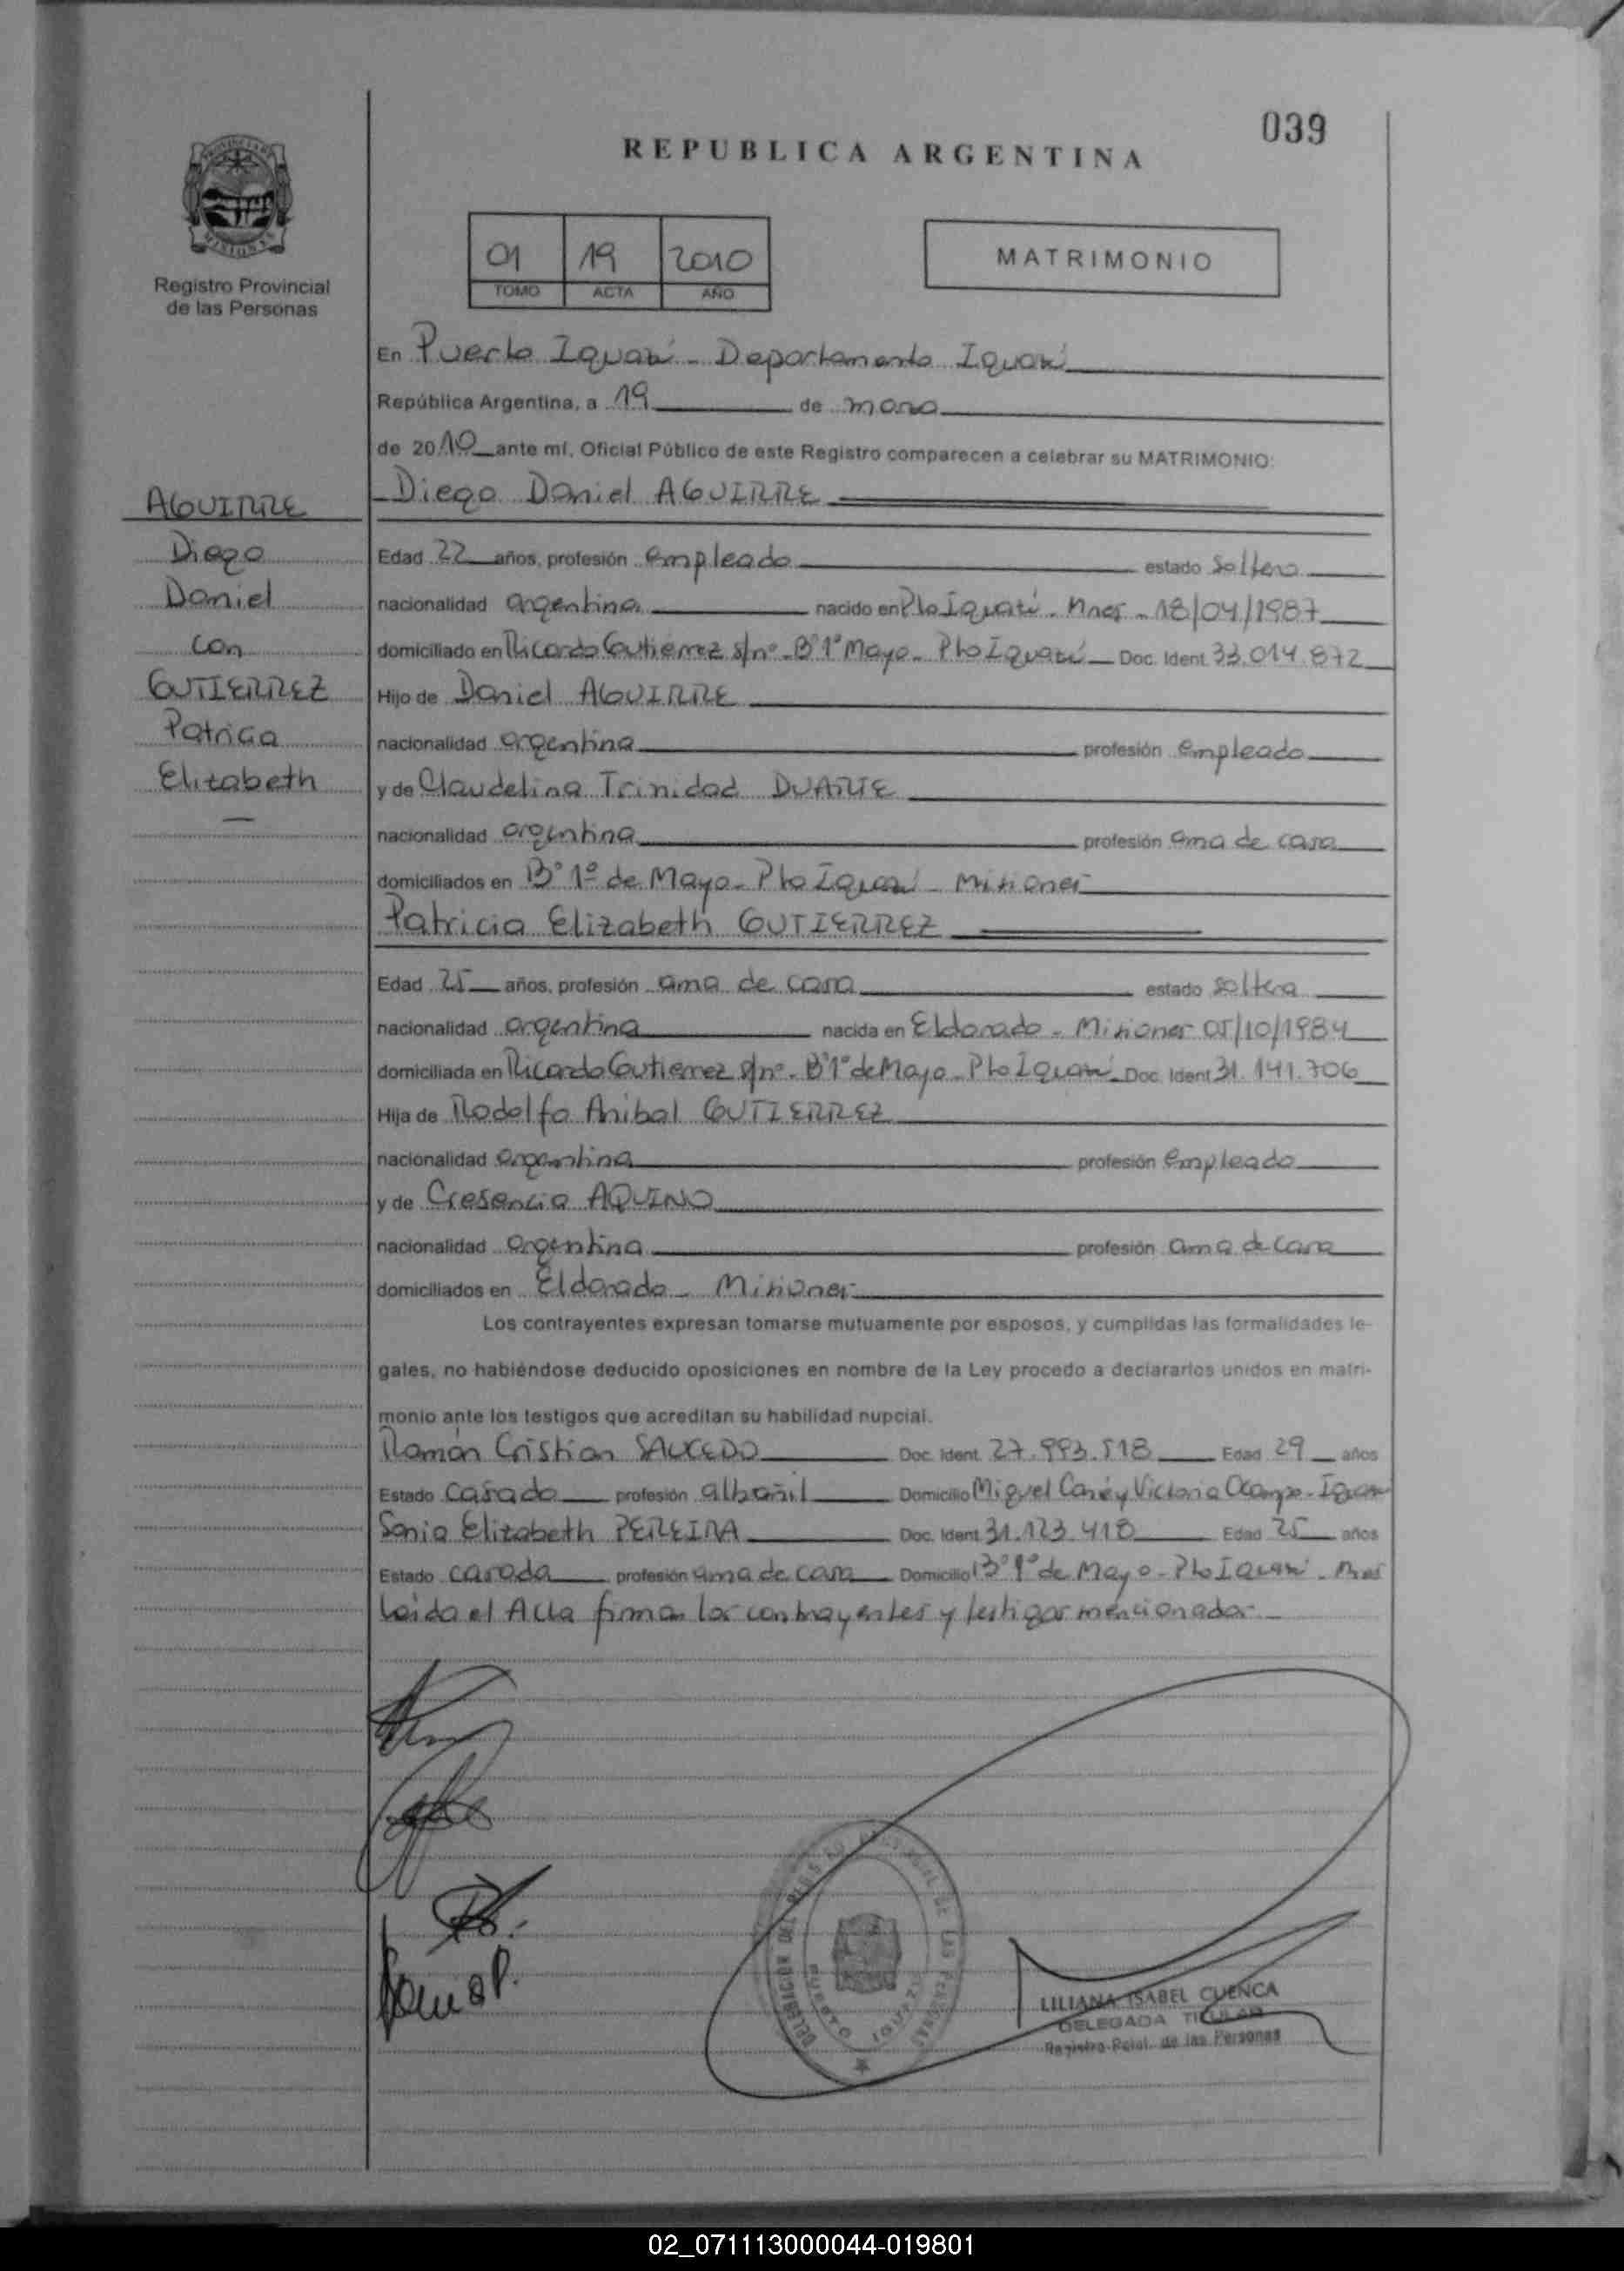 039
REPUBLICA ARGENTINA
PROVINCIA DE
MISIONES
Registro Provincial
de las Personas
01 19 2010
TOMO ACTA AÑO
MATRIMONIO
En Puerto Iguazú - Departamento Iguazú
República Argentina, a 19 de marzo
de 2010 ante mí, Oficial Público de este Registro comparecen a celebrar su MATRIMONIO:
Diego Daniel AGUIRRE
AGUIRRE
Diego
Daniel
con
GUTIERREZ
Patricia
Elizabeth
Edad 22 años, profesión empleado estado soltero
nacionalidad argentina nacido en Pto Iguazú - Mnes - 18/04/1987
domiciliado en Ricardo Gutierrez s/nº - Bº 1º Mayo - Pto Iguazú Doc. Ident. 33.014.872
Hijo de Daniel AGUIRRE
nacionalidad argentina profesión empleado
y de Claudelina Trinidad DUARTE
nacionalidad argentina profesión ama de casa
domiciliados en Bº 1º de Mayo - Pto Iguazú - Misiones
Patricia Elizabeth GUTIERREZ
Edad 25 años, profesión ama de casa estado soltera
nacionalidad argentina nacida en Eldorado - Misiones 05/10/1984
domiciliada en Ricardo Gutierrez s/nº - Bº 1º de Mayo - Pto Iguazú Doc. Ident. 31.141.706
Hija de Rodolfo Anibal GUTIERREZ
nacionalidad argentina profesión empleado
y de Cresencia AQUINO
nacionalidad argentina profesión ama de casa
domiciliados en Eldorado - Misiones
Los contrayentes expresan tomarse mutuamente por esposos, y cumplidas las formalidades le-
gales, no habiéndose deducido oposiciones en nombre de la Ley procedo a declararlos unidos en matri-
monio ante los testigos que acreditan su habilidad nupcial.
Ramón Cristian SAUCEDO Doc. Ident. 27.993.518 Edad 29 años
Estado casado profesión albañil Domicilio Miguel Cané y Victoria Ocampo - Iguazú
Sonia Elizabeth PEREIRA Doc. Ident. 31.123.418 Edad 25 años
Estado casada profesión ama de casa Domicilio Bº 1º de Mayo - Pto Iguazú - Mnes
Leida el Acta firman los contrayentes y testigos mencionados
Sonia P.
DELEGACION DEL REGISTRO PROVINCIAL DE LAS PERSONAS
PUERTO IGUAZU
LILIANA ISABEL CUENCA
DELEGADA TITULAR
Registro Pcial. de las Personas
02_071113000044-019801